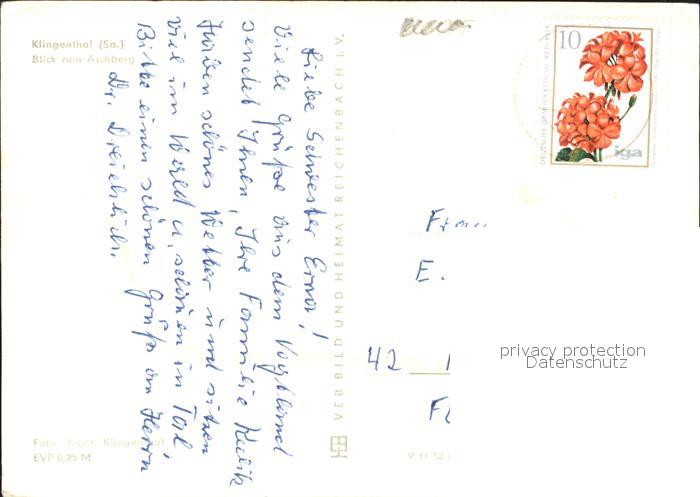 Klingenthal (Sa.)
Blick zum Aschberg
Liebe Schwester Erna!
Viele Grüße aus dem Vogtland
sendet Ihnen, Ihre Familie
Haben schönes Wetter und sitzen
viel im Wald u. schauen in Tal,
Bitte einen schönen Gruß an Herrn
Dr.
Foto: Jobst, Klingenthal
EVP 0,25 M
VEB BILD UND HEIMAT REICHENBACH i. V.
V 11 50
10
DEUTSCHE DEMOKRATISCHE REPUBLIK
iga
E.
42
privacy protection
Datenschutz